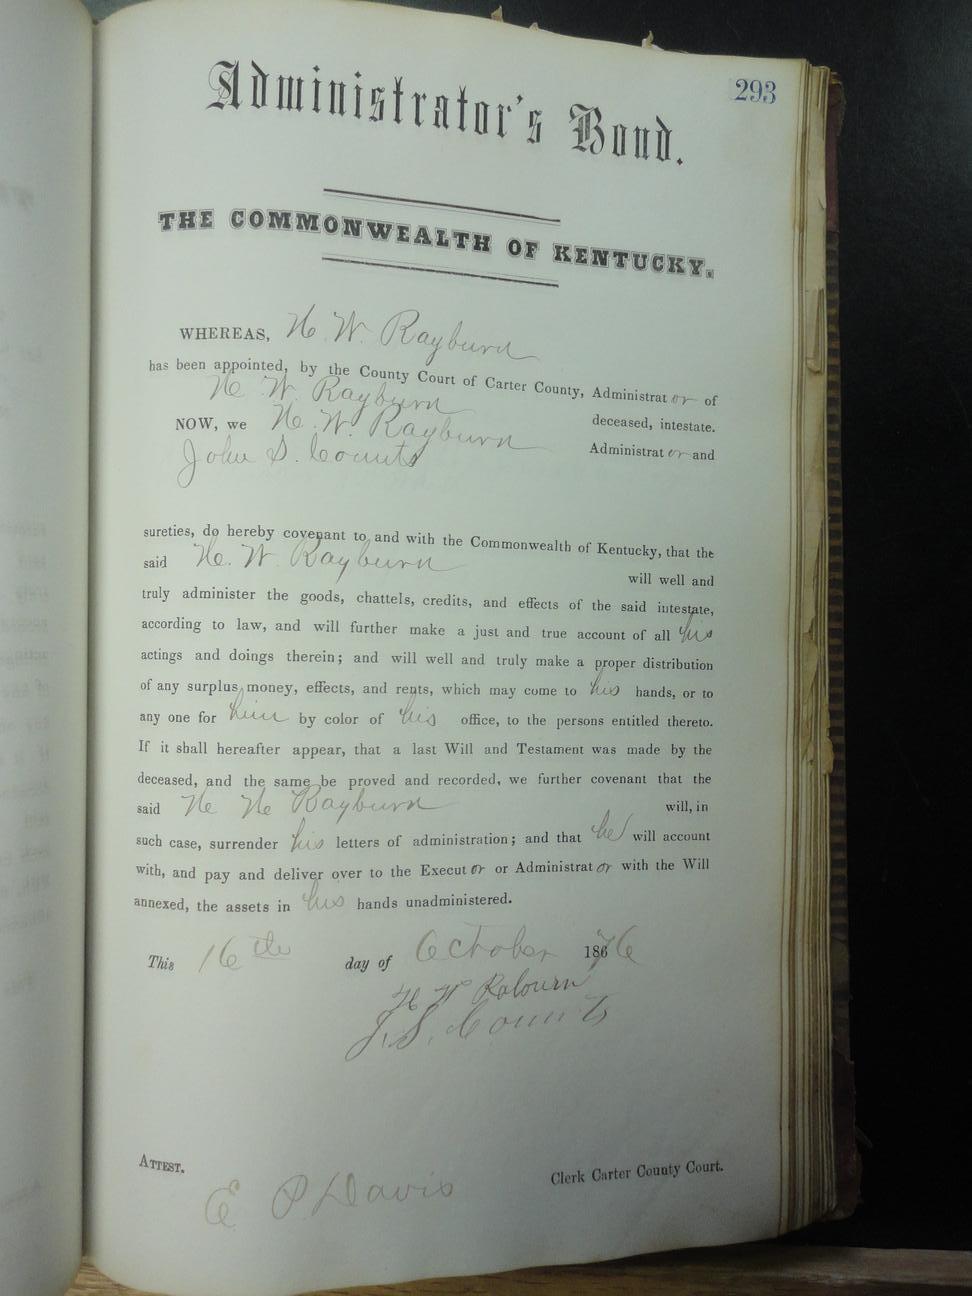 293
Administrator's Bond.
THE COMMONWEALTH OF KENTUCKY.
WHEREAS, H. W. Rayburn
has been appointed, by the County Court of Carter County, Administrat or of
H. W. Rayburn deceased, intestate.
NOW, we H. W. Rayburn Administrat or and
John S. Counts
sureties, do hereby covenant to and with the Commonwealth of Kentucky, that the
said H. W. Rayburn will well and
truly administer the goods, chattels, credits, and effects of the said intestate,
according to law, and will further make a just and true account of all his
actings and doings therein; and will well and truly make a proper distribution
of any surplus money, effects, and rents, which may come to his hands, or to
any one for him by color of his office, to the persons entitled thereto.
If it shall hereafter appear, that a last Will and Testament was made by the
deceased, and the same be proved and recorded, we further covenant that the
said Rayburn will, in
such case, surrender his letters of administration; and that he will account
with, and pay and deliver over to the Execut or or Administrat or with the Will
annexed, the assets in his hands unadministered.
This 16th day of October 1876
H W Rabourn
J. S. Counts
ATTEST.
E P Davis Clerk Carter County Court.